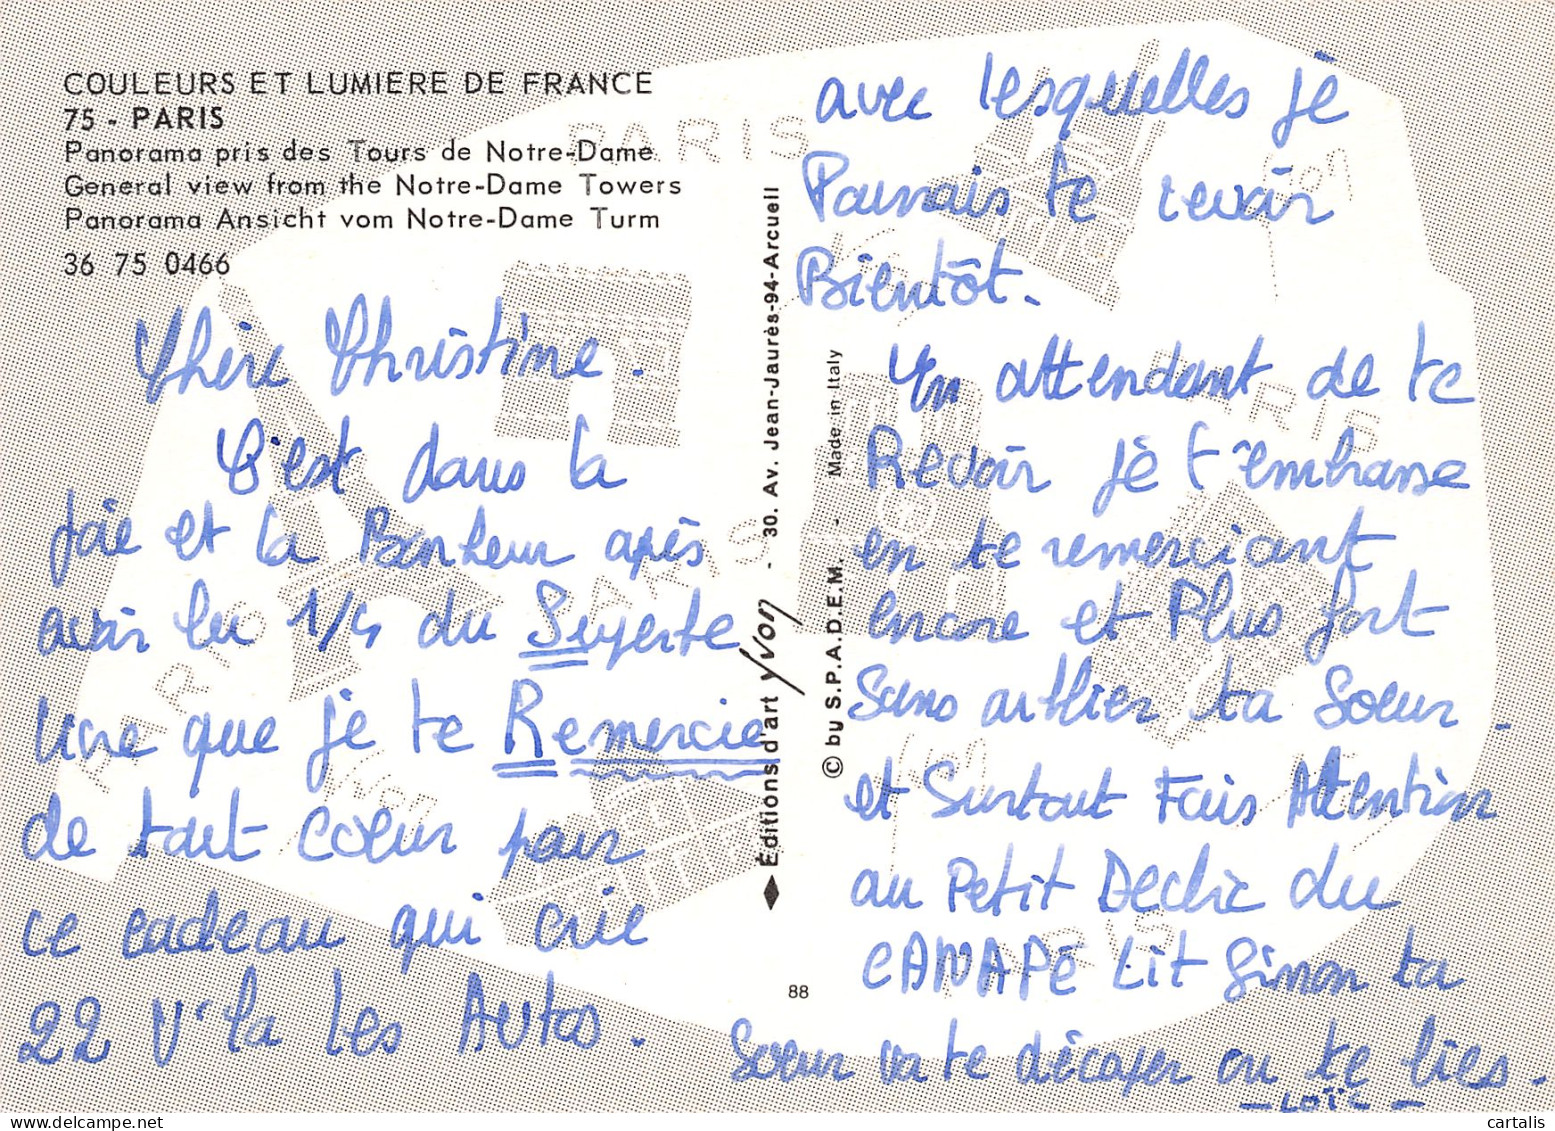 COULEURS ET LUMIERE DE FRANCE
75 - PARIS
Panorama pris des Tours de Notre-Dame
General view from the Notre-Dame Towers
Panorama Ansicht vom Notre-Dame Turm
36 75 0466
Chère Christine.
C'est dans la
joie et la Bonheur après
avoir lu 1/4 du
livre que je te Remercie
de tout cœur pour
ce cadeau qui crie
22 V'la les Autos.
Éditions d'art Yvon - 30. Av. Jean-Jaurès-94-Arcueil
© by S.P.A.D.E.M. - Made in Italy
88
avec lesquelles je
Pourrais te revoir
Bientôt.
En attendant de te
Revoir je t'embrasse
en te remerciant
encore et Plus fort
Sans oublier ta Soeur.
et Surtout Fais Attention
au Petit Declic du
CANAPÉ Lit Sinon ta
Soeur va te décaper ou te lies.
- LOÏC -
PARIS
Yvon
PARIS
PARIS
PARIS
Yvon
Yvon
cartalis